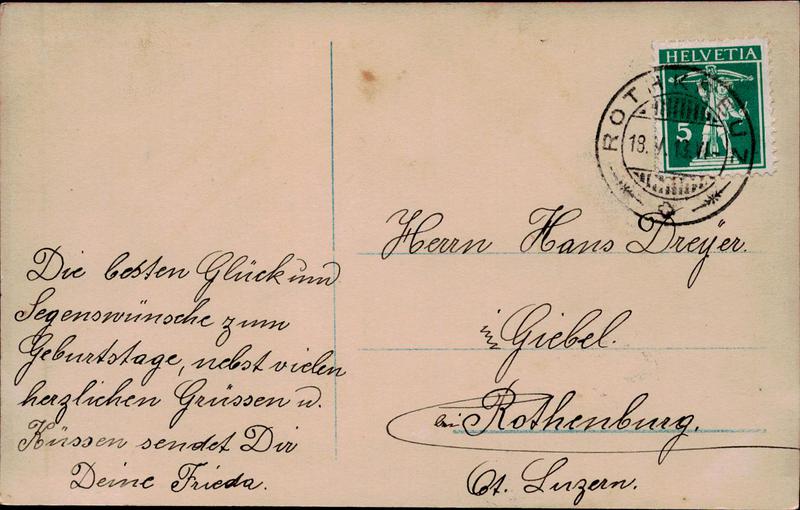 Die besten Glück und
Segenswünsche zum
Geburtstage, nebst vielen
herzlichen Grüssen u.
Küssen sendet Dir
Deine Frieda.
HELVETIA
5
ROTHKREUZ
18. V. 13. VI
Herrn Hans Dreyer.
in Giebel.
bei Rothenburg.
Ct. Luzern.